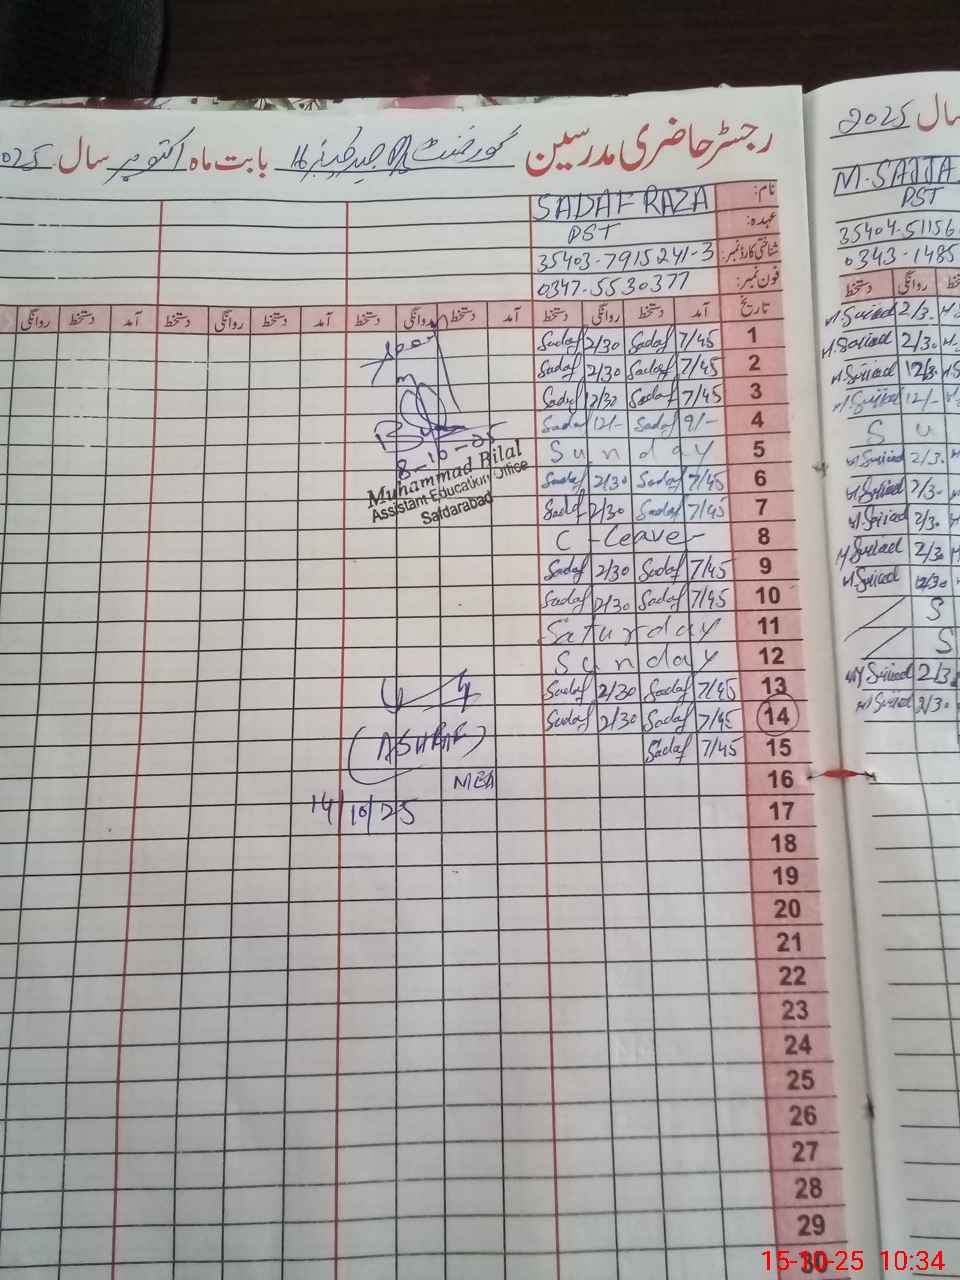 رجسٹر حاضری مدرسین گورنمنٹ بابت ماہ اکتوبر سال 2025
نام: SADAF RAZA
عہدہ: PST
شناختی کارڈ نمبر: 35403-7915241-3
فون نمبر: 0347-5530377
تاریخ آمد دستخط روانگی دستخط آمد دستخط روانگی دستخط آمد دستخط روانگی دستخط آمد دستخط روانگی
1 7/45 Sadaf 2/30 Sadaf
2 7/45 Sadaf 2/30 Sadaf
3 7/45 Sadaf 12/30 Sadaf
4 9/- Sadaf 12/- Sadaf
5 Sunday
6 7/45 Sadaf 2/30 Sadaf
7 7/45 Sadaf 2/30 Sadaf
8 C-Leave-
9 7/45 Sadaf 2/30 Sadaf
10 7/45 Sadaf 2/30 Sadaf
11 Saturday
12 Sunday
13 7/45 Sadaf 2/30 Sadaf
14 7/45 Sadaf 2/30 Sadaf
15 7/45 Sadaf
16
17
18
19
20
21
22
23
24
25
26
27
28
29
30
8-10-25
Muhammad Bilal
Assistant Education Office
Safdarabad
(ASHRAF)
MEA
14/10/25
سال 2025
M. SAJJA
PST
35404-51156
0343-1485
روانگی دستخط
2/3
2/30
12/30
12/-
S u
2/30
2/30
2/30
2/30
12/30
S
S
2/30
2/30
15-10-25 10:34